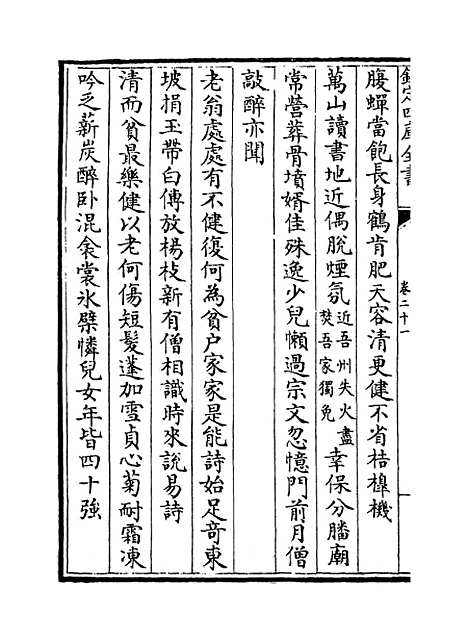 欽定四庫全書
卷二十一
腹蟬當飽長身鶴肯肥天容清更健不省桔槹機
萬山讀書地近偶脫煙氛近吾州失火盡焚吾家獨免幸保分膰廟
常營葬骨墳婿佳殊逸少兒懶過宗文忽憶門前月僧
敲醉亦聞
老翁處處有不健復何為貧户家家是能詩始足竒東
坡捐玉帶白傅放楊枝新有僧相識時來說易詩
清而貧最樂健以老何傷短髮蓬加雪貞心菊耐霜凍
吟乏薪炭醉卧混衾裳氷櫱憐兒女年皆四十強